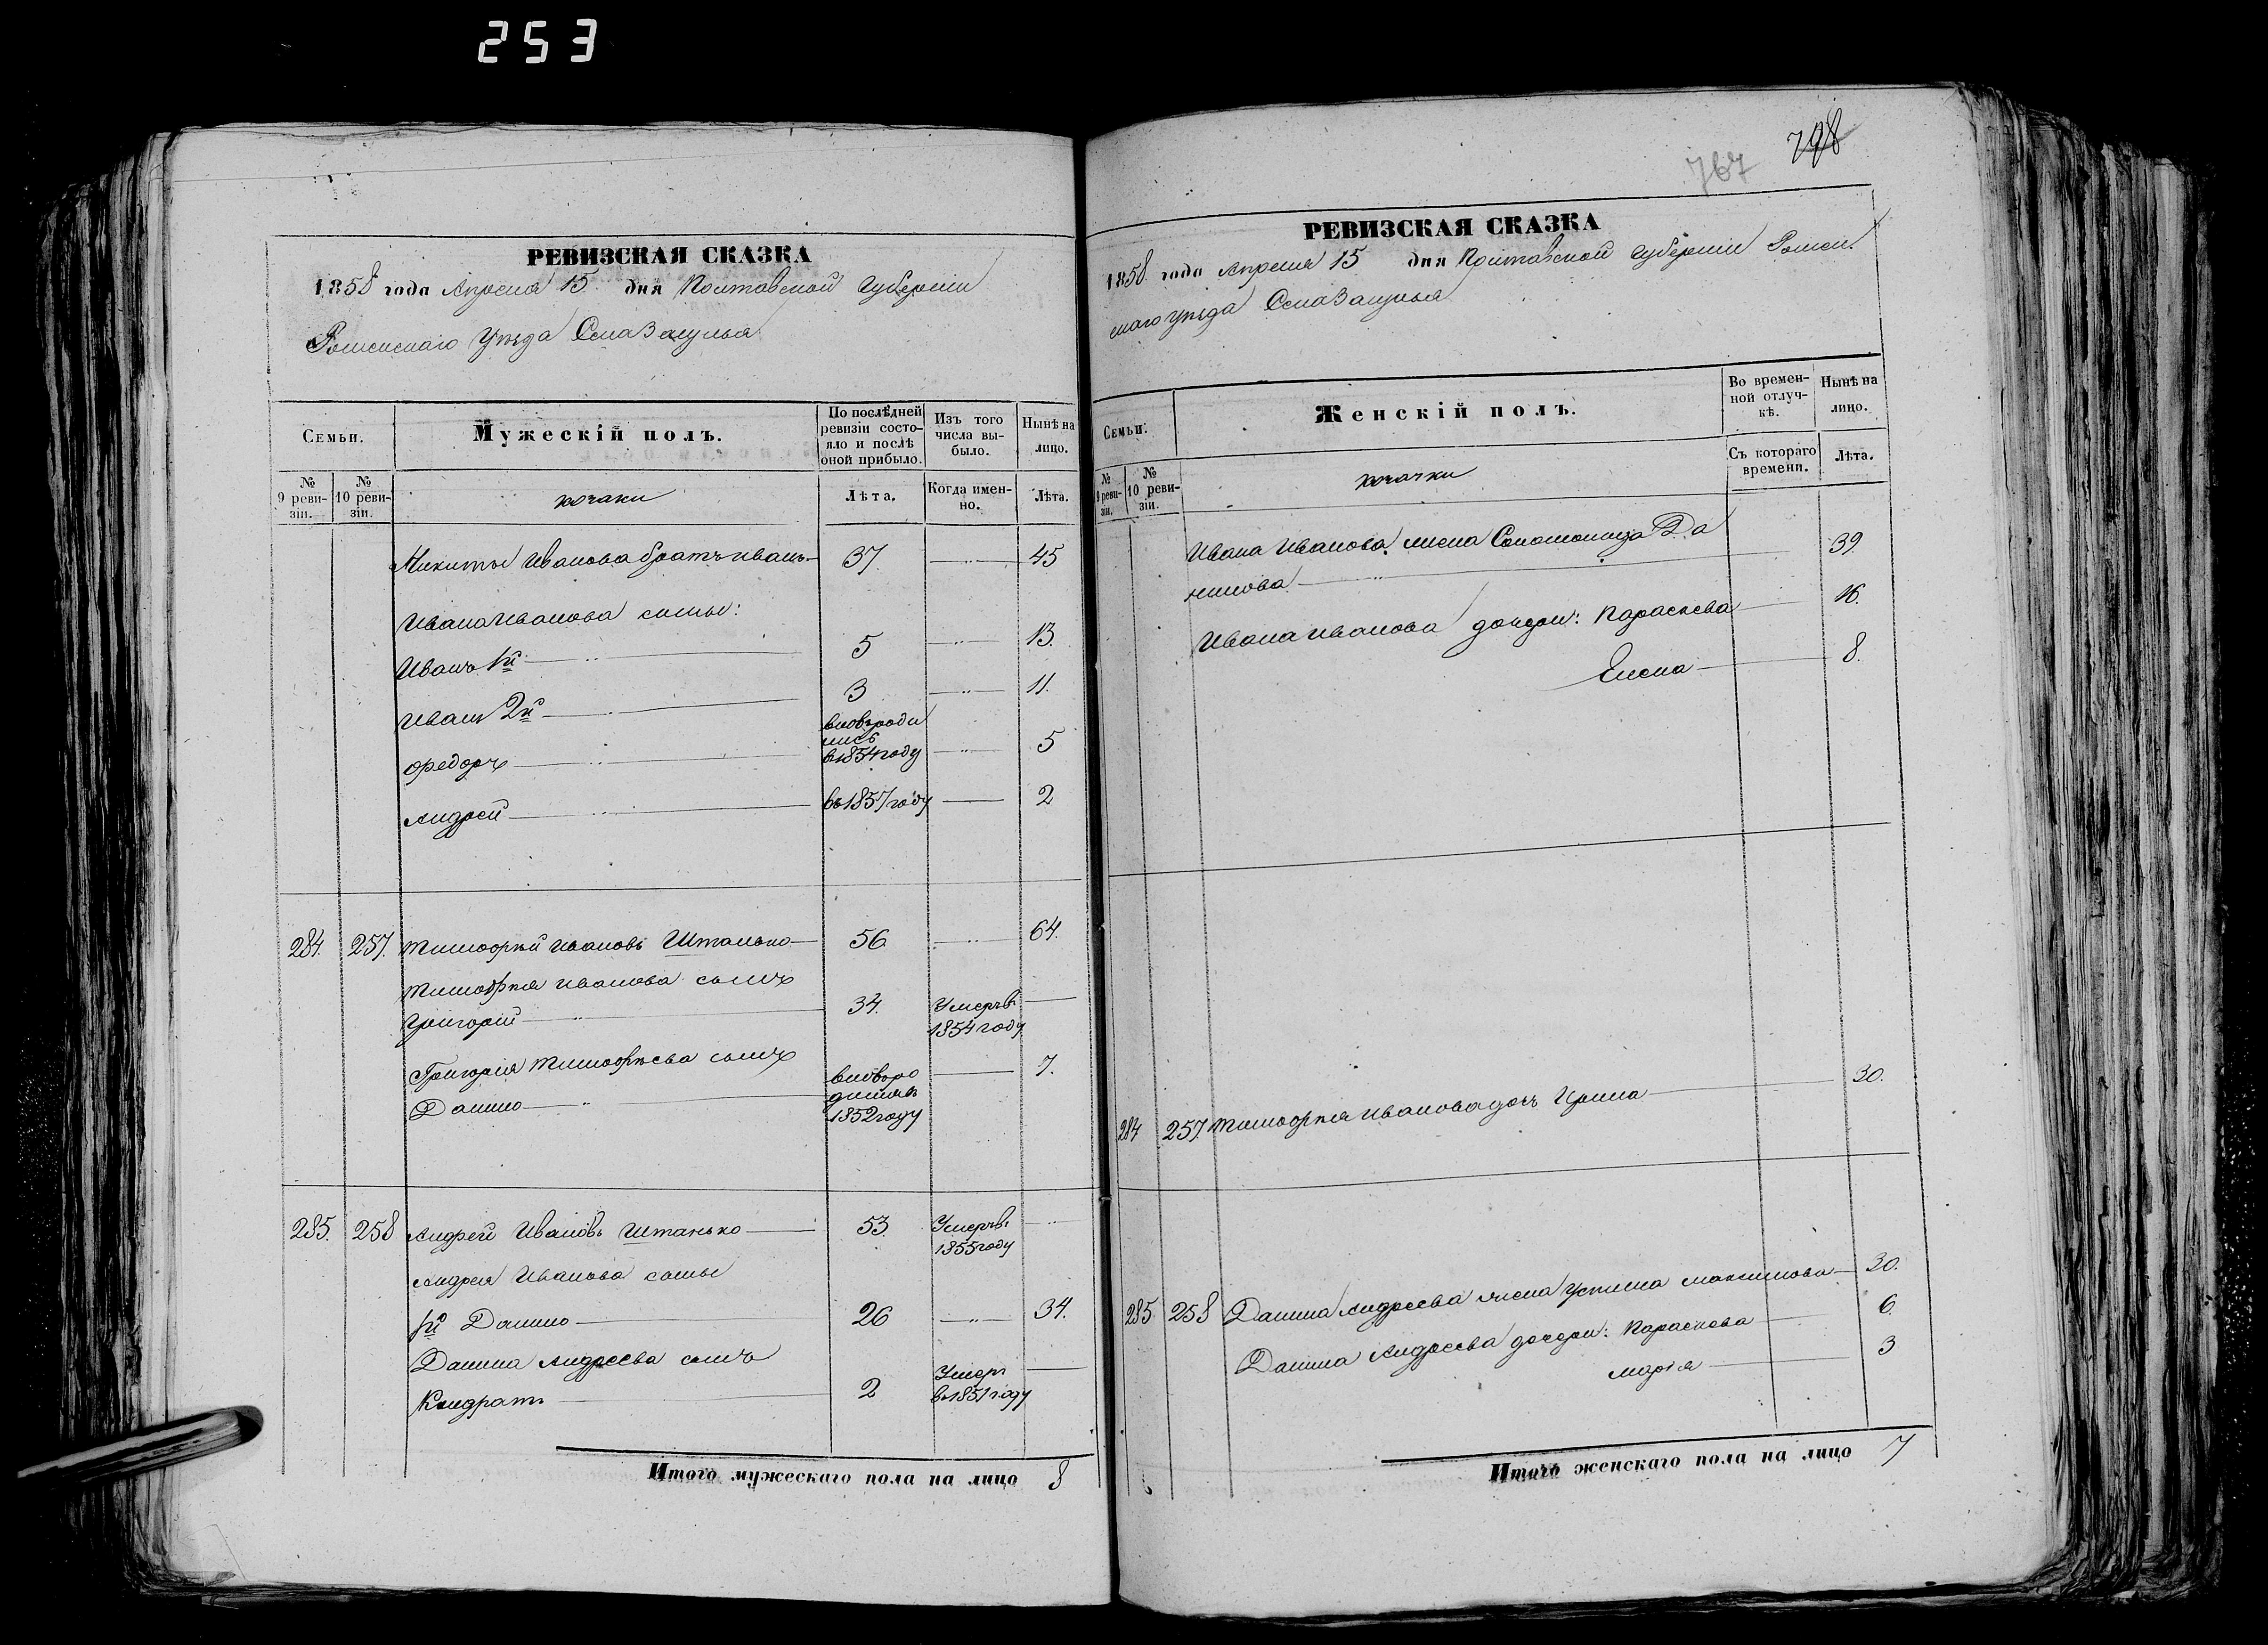 253
РЕВИЗСКАЯ СКАЗКА
1858 года Апреля 15 дня Полтавской Губерніи
Роменскаго Уѣзда Села Загулья
Семьи.
Мужескій полъ.
По послѣдней ревизіи состояло и послѣ оной прибыло.
Изъ того числа выбыло.
Нынѣ на лицо.
№ 9 ревизіи.
№ 10 ревизіи.
козаки
Лѣта.
Когда именно.
Лѣта.
Микиты Иванова братъ Иванъ 37 45
Ивана Иванова сыны:
Иванъ 1й 5 13.
Иванъ 2й 3 11.
Федоръ вновь родились въ 1854 году 5
Андрей въ 1857 году 2
284. 257. Тимофѣй Ивановъ Штанько 56 64.
Тимофѣя Иванова сынъ
Григорій 34. Умеръ въ 1854 году
Григорія Тимофѣева сынъ
Данило вновь родился 1852 году 7.
285. 258 Андрей Ивановъ Штанько 53 Умеръ въ 1855 году
Андрея Иванова сыны
1й Данило 26 34.
Данила Андреева сынъ
Кондратъ 2 Умеръ въ 1851 году
Итого мужескаго пола на лицо 8
767 798
РЕВИЗСКАЯ СКАЗКА
1858 года Апреля 15 дня Полтавской Губерніи Ромен
скаго Уѣзда Села Загулья
Семьи.
Женскій полъ.
Во временной отлучкѣ.
Нынѣ на лицо.
№ 9 ревизіи.
№ 10 ревизіи.
козачки
Съ котораго времени.
Лѣта.
Ивана Иванова жена Соломонида Да
нилова 39.
Ивана Иванова дочери: Параскева 16.
Елена 8.
284 257. Тимофѣя Иванова дочь Ирина 30.
285 258 Данила Андреева жена Устина Максимова 30.
Данила Андреева дочери: Параскева 6
Марія 3
Итого женскаго пола на лицо 7